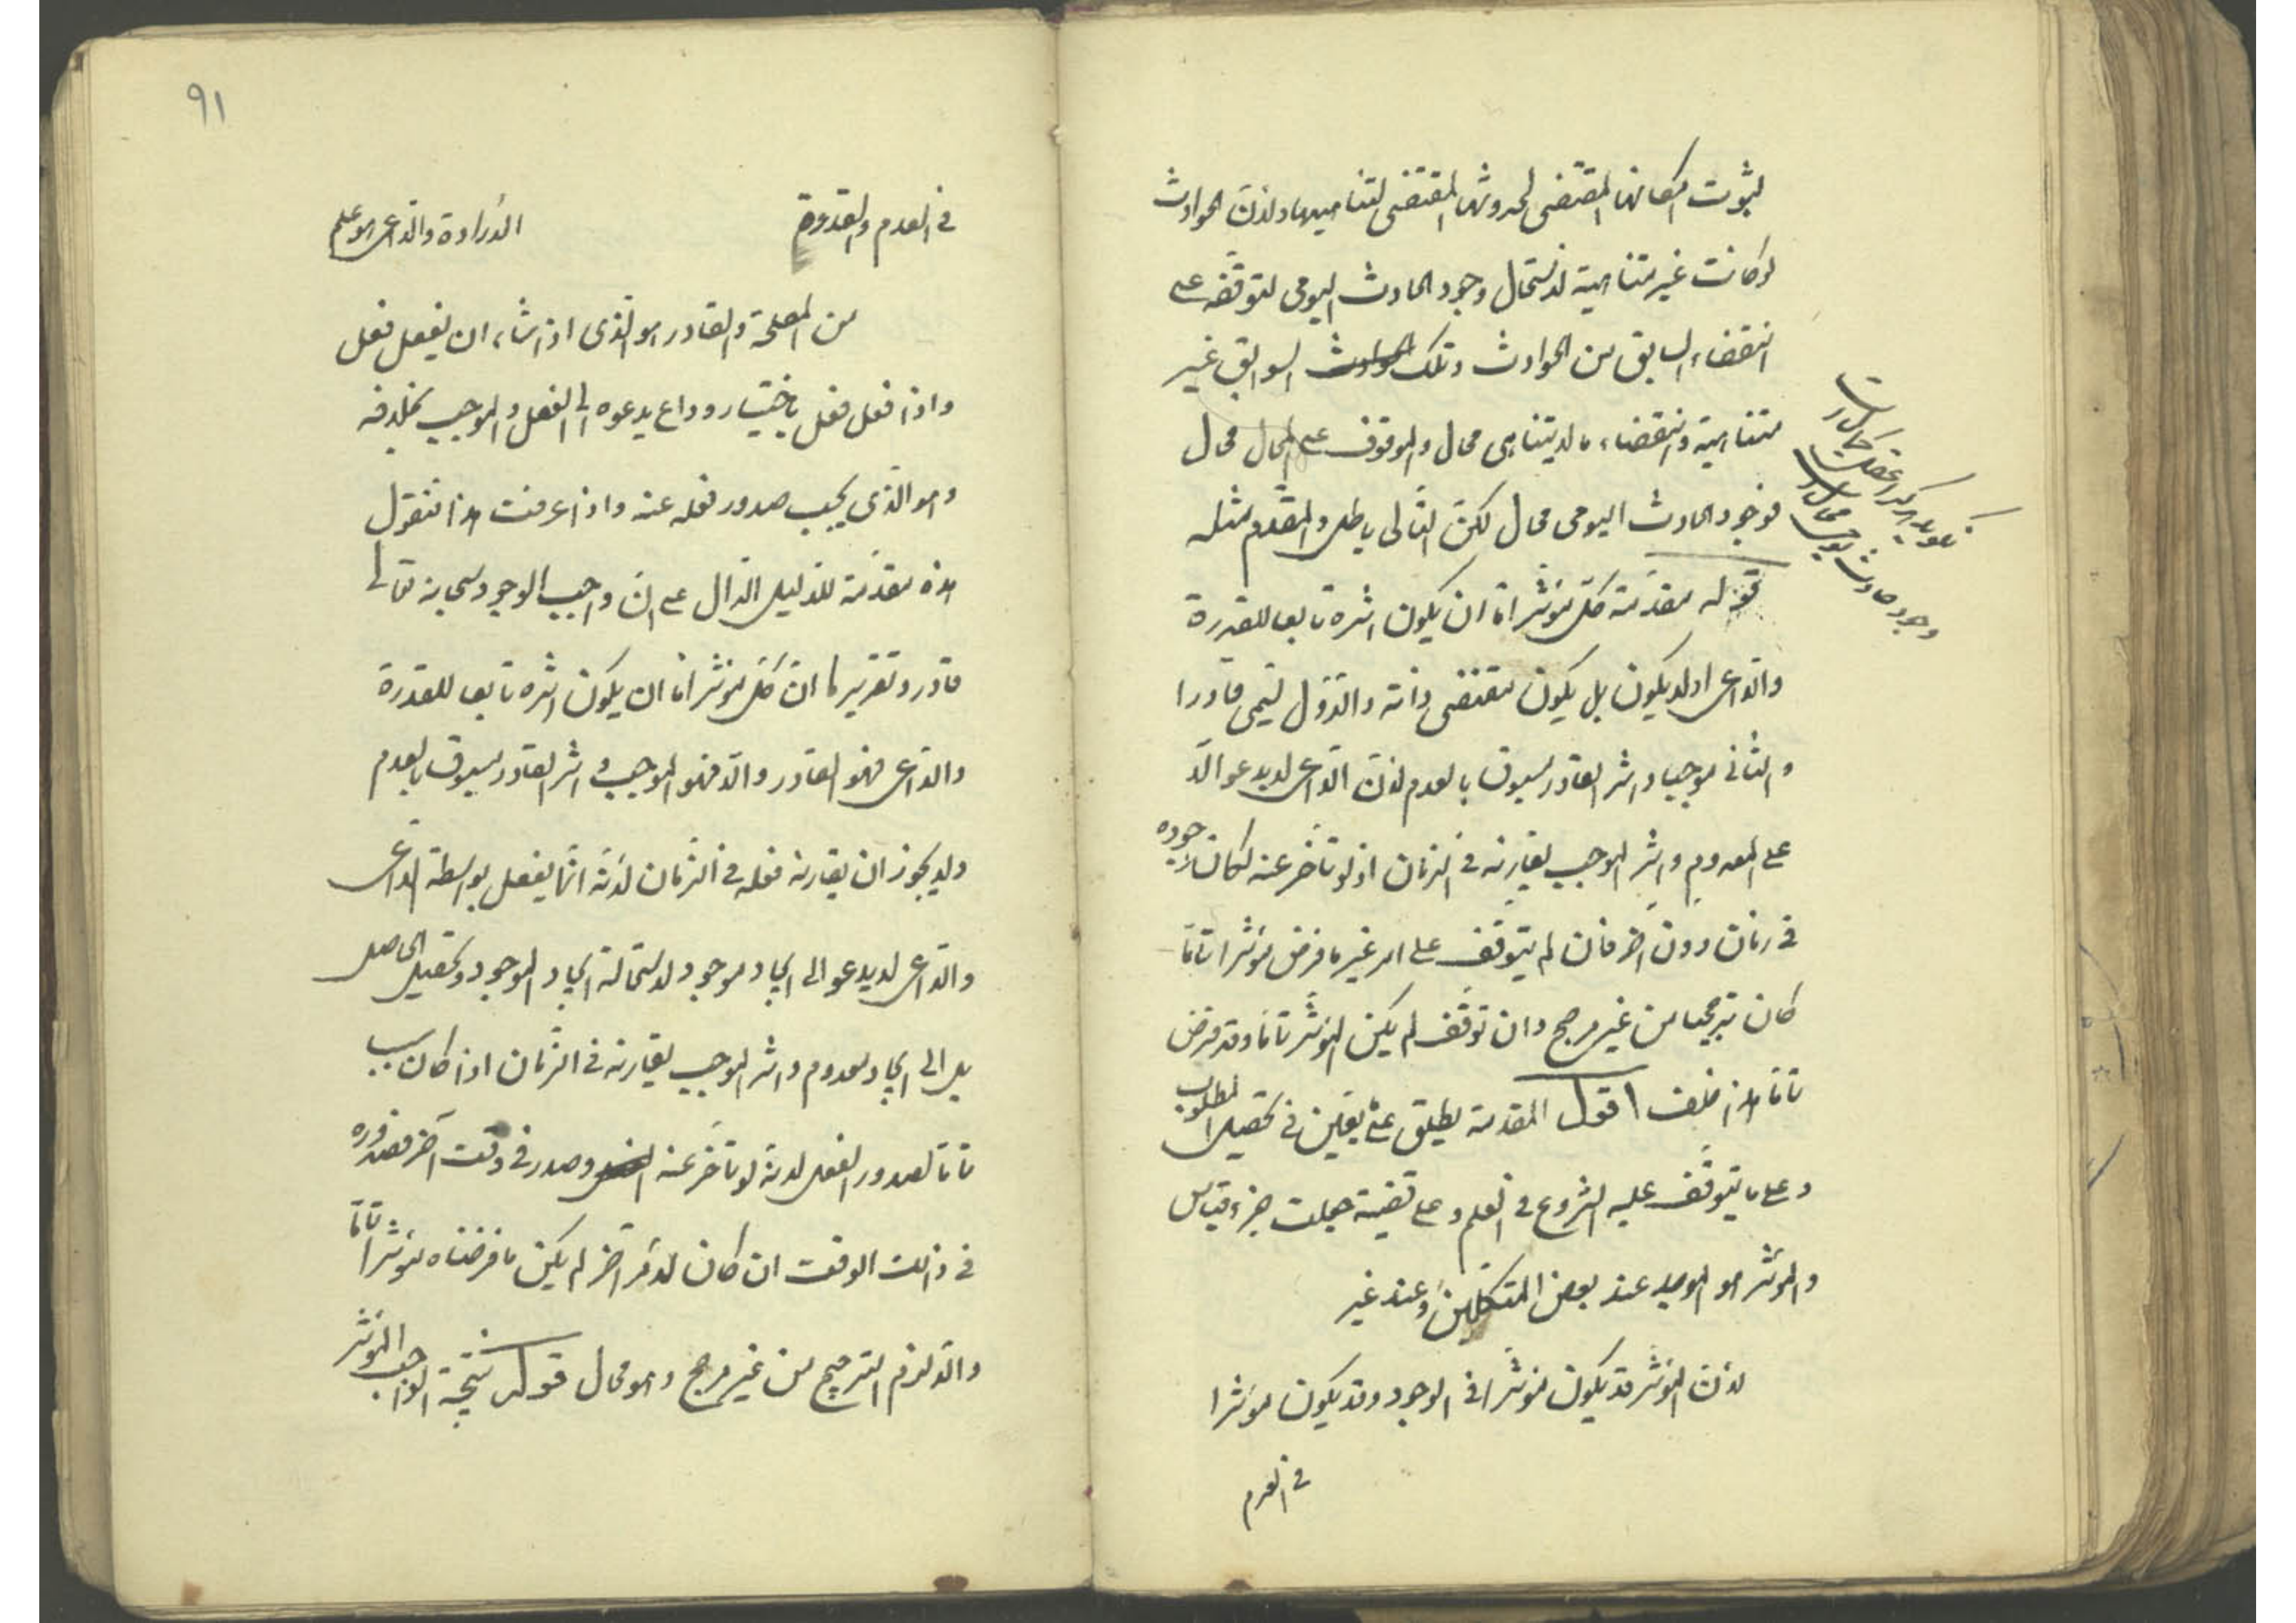 لثبوت امكانها المقتضى لحدوثها المقتضى لتناهيها ولان الحوادث
لو كانت غير متناهية لاستحال وجود الحادث اليومى لتوقفه على
انقضاء السابق من الحوادث وتلك الحوادث السوابق غير
متناهية وانقضاء ما لا يتناهى محال والموقوف على المحال محال
فوجود الحادث اليومى محال لكن التالى باطل والمقدم مثله
قوله مقدمة كل مؤثر اما ان يكون اثره تابعا للقدرة
والداعى او لا يكون بل يكون مقتضى ذاته والاول يسمى قادرا
والثانى موجبا واثر القادر مسبوق بالعدم لان الداعى لا يدعو الا
على المعدوم واثر الموجب يقارنه فى الزمان اذ لو تاخر عنه لكان وجوده
فى زمان دون اخر فان لم يتوقف على امر غير ما فرض مؤثرا تاما
كان ترجيحا من غير مرجح وان توقف لم يكن المؤثر تاما وقد فرض
تاما هذا خلف اقول المقدمة يطلق على يقين فى تحصيل المطلوب
وعلى ما يتوقف عليه الشروع فى العلم وعلى قضية جعلت جزء قياس
والمؤثر هو الموجد عند بعض المتكلمين وعند غير
لان المؤثر قد يكون مؤثرا فى الوجود وقد يكون مؤثرا
فى العدم
وجود حادث يومى محال است
٩١
فى العدم والقدرة الارادة والداعى هو علم
من المصلحة والقادر هو الذى اذا شاء ان يفعل فعل
واذا فعل فعل باختيار وداع يدعوه الى الفعل والموجب بخلافه
وهو الذى يجب صدور فعله عنه واذا عرفت هذا فنقول
هذه مقدمة للدليل الدال على ان واجب الوجود سبحانه تعالى
قادر وتقريرها ان كل مؤثر اما ان يكون اثره تابعا للقدرة
والداعى فهو القادر والا فهو الموجب واثر القادر مسبوق بالعدم
ولا يجوز ان يقارنه فعله فى الزمان لانه انما يفعل بواسطة الداعى
والداعى لا يدعو الى ايجاد موجود لاستحالة ايجاد الموجود وتحصيل الحاصل
بل الى ايجاد معدوم واثر الموجب يقارنه فى الزمان اذا كان سببا
تاما لصدور الفعل لانه لو تاخر عنه الفعل وصدر فى وقت آخر فصدوره
فى ذالك الوقت ان كان لامر آخر لم يكن ما فرضناه مؤثرا تاما
والا لزم الترجيح من غير مرجح وهو محال قوله نتيجة الواجب المؤثر